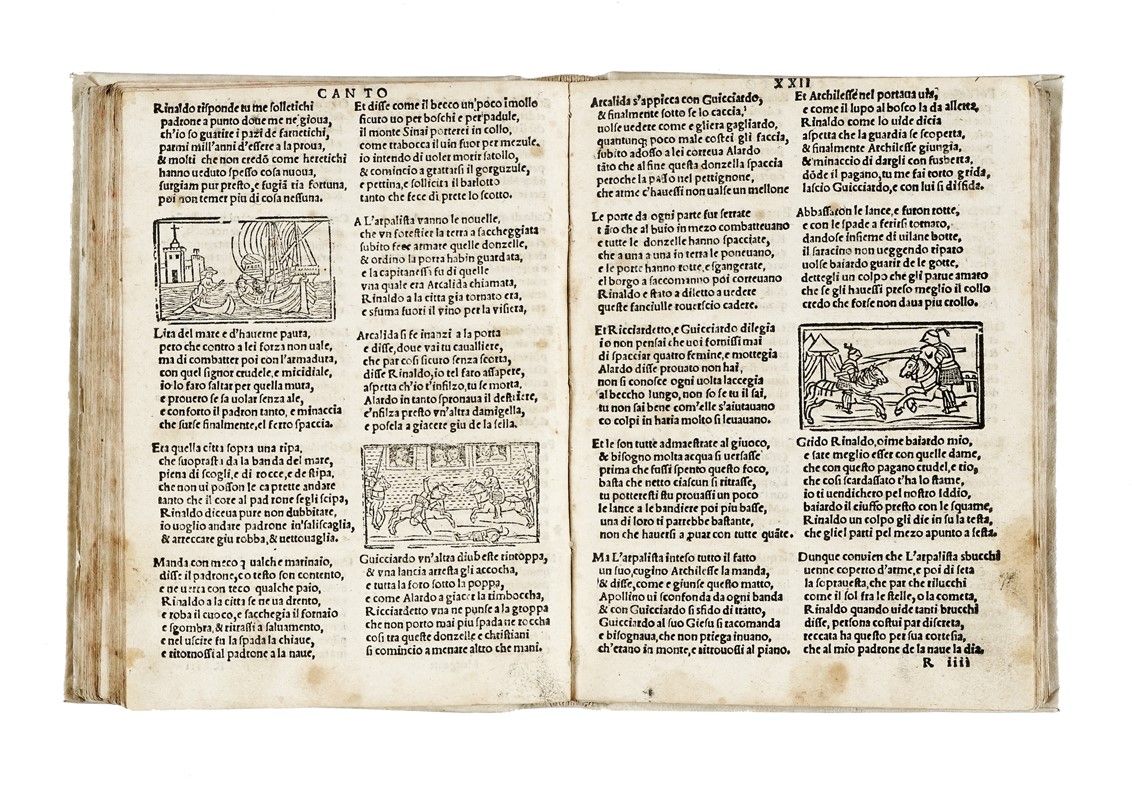 CANTO
Rinaldo risponde tu me solletichi
padrone a punto doue me ne gioua,
ch'io so guarire i pazi de farnetichi,
parmi mill'anni d'essere a la proua,
& molti che non credō come heretichi
hanno ueduto spesso cosa nuoua,
surgiam pur presto, e fugiā ria fortuna,
poi non temer piu di cosa nessuna.
Lira del mare e d'hauerne paura,
pero che contro a lei forza non uale,
ma di combatter poi con l'armadura,
con quel signor crudele, e micidiale,
io lo faro saltar per quella mura,
e prouero se sa uolar senza ale,
e conforto il padron tanto, e minaccia
che surse finalmente, el ferro spaccia.
Era quella citta sopra una ripa,
che soprasta da la banda del mare,
piena di scogli, e di rocce, e de stipa,
che non ui posson le capre andare
tanto che il core al padrone segli scipa,
Rinaldo diceua pure non dubbitare,
io uoglio andare padrone in saliscaglia,
& arreccare giu robba, & uettouaglia.
Manda con meco qualche marinaio,
disse il padron, co testo son contento,
e ne uerra con teco qualche paio,
Rinaldo a la citta se ne ua drento,
e roba il cuoco, e sacchegia il fornaio
e sgombra, & ritrassi a saluamento,
e nel uscire fu la spada la chiaue,
e ritornossi al padrone a la naue,
Et disse come il becco un'poco imollo
sicuto uo per boschi e per padule,
il monte Sinai porterei in collo,
come trabocca il uin fuor per mezule.
io intendo di uoler morir satollo,
& comincio a grattarsi il gorguzule,
e pettina, e sollicita il barlotto
tanto che fece di prete lo scotto.
A L'arpalista vanno le nouelle,
che vn forestier la terra a saccheggiata
subito fece armare quelle donzelle,
& ordino la porta habin guardata,
e la capitanessa fu di quelle
vna quale era Arcalida chiamata,
Rinaldo a la citta gia tornato era,
e sfuma fuori il vino per la visiera,
Arcalida si fe inanzi a la porta
e disse, doue vai tu caualliere,
che par cosi sicuro senza scorta,
disse Rinaldo, io tel faro assapere,
aspetta ch'io t'infilzo, tu se morta,
Alardo in tanto spronaua il destriere,
e'nfilza presto vn'altra damigella,
e posela a giacere giu de la sella.
Guicciardo vn'altra diubeste rintoppa,
& vna lancia arresta gli accocha,
e tutta la foro sotto la poppa,
e come Alardo a giacer la rimboccha,
Ricciardetto vna ne punse a la groppa
che non porto mai piu spada ne roccha
cosi tra queste donzelle e christiani
si comincio a menare altro che mani.
XXII
Arcalida s'appicca con Guicciardo,
& finalmente sotto se lo caccia,
uolse uedere come egliera gagliardo,
quantunq; poco male costei gli faccia,
subito adosso a lei correua Alardo
tāto che al fine questa donzella spaccia
pero che la passo nel pettignone,
che arme c'hauessi non ualse un mellone
Le porte da ogni parte fur serrate
tāto che al buio in mezo combatteuano
e tutte le donzelle hanno spacciate,
che a una a una in terra le poneuano,
e le porte hanno rotte, e sgangerate,
el borgo a saccomanno poi correuano
Rinaldo e stato a diletto a uedere
queste fanciulle rouerscio cadere.
Et Ricciardetto, e Guicciardo dilegia
io non pensai che uoi fornissi mai
di spacciar quatro femine, e mottegia
Alardo disse prouato non hai,
non si conosce ogni uolta laccegia
al beccho lungo, non so se tu il sai,
tu non sai bene com'elle s'aiutauano
co colpi in haria molto si leuauano.
Et le son tutte admaestrate al giuoco,
& bisogno molta acqua si uersasse
prima che fussi spento questo foco,
basta che netto ciascun si ritrasse,
tu potteresti stu prouassi un poco
le lance a le bandiere poi piu basse,
una di loro ti parrebbe bastante,
non che hauersi a prouar con tutte quāte.
Ma L'arpalista inteso tutto il fatto
un suo cugino Archilesse la manda,
& disse, come e giunse questo matto,
Apollino ui sconfonda da ogni banda
& con Guicciardo si sfido di tratto,
Guicciardo al suo Giesu si racomanda
e bisognaua, che non priega inuano,
ch'erano in monte, e ritrouossi al piano.
Et Archilesse nel portaua uia,
e come il lupo al bosco la da alletta,
Rinaldo come lo uide dicia
aspetta che la guardia se scoperta,
& finalmente Archilesse giungia,
& minaccio di dargli con fusberta,
dōde il pagano, tu me fai torto grida,
lascio Guicciardo, e con lui si disfida.
Abbassaron le lance, e furon rotte,
e con le spade a ferirsi tornato,
dandose insieme di uilane botte,
il saracino non ueggendo riparo
uolse baiardo guarir de le gotte,
dettegli un colpo che gli parue amaro
che se gli hauessi preso meglio il collo
credo che forse non daua piu crollo.
Grido Rinaldo, oime baiardo mio,
e fare meglio esser con quelle dame,
che con questo pagano crudel, e rio,
che cosi scardassato t'ha lo stame,
io ti uendichero pel nostro Iddio,
baiardo il ciuffo presto con le squame,
Rinaldo un colpo gli die in su la testa,
che gliel parti pel mezo apunto a sesta.
Dunque conuien che L'arpalista sbucchi
uenne coperto d'arme, e poi di seta
la soprauesta, che par che rilucchi
come il sol fra le stelle, o la cometa,
Rinaldo quando uide tanti brucchi
disse, persona costui par discreta,
reccata ha questo per sua cortesia,
che al mio padrone de la naue la dia.
R iiii